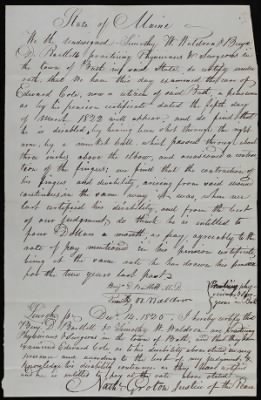 State of Maine
We the undersigned Timothy W Waldron & Benja
D. Bartlett practising Physicians & Surgeons in
the town of Bath in said State, do certify under
oath, that we have this day examined the case of
Edward Cole, now a citizen of said Bath, a pensioner
as by his pension certificate dated the fifth day
of March 1822 will appear, and do find that
he is disabled, by having been shot through the right
arm, by a musket ball, which passed through about
three inches above the elbow, and occasioned a contrac
tion of the fingers; we find that the contraction of
his fingers and disability, arising from said wound
continues the same as it was, when we
last certified his disability, and from the best
of our judgment, do think he is entitled to
four Dollars a month, as pay, agreeably to the
rate of pay mentioned in his pension certificate,
being at the same rate he has drawn his pension
for the two years last past
Benj D Bartlett M.D.
Timothy W Waldron
Practising phy
sicians & Sur
geons in Bath
Lincoln ss. Dec 14. 1825 I hereby certify that
Benj. D. Bartlett & Timothy W. Waldron are practising
Physicians & Surgeons in the town of Bath, and that they have
examined Edward Cole as to his disability above stated in my
presence and according to the best of my judgment &
knowledge his disability continues, as they have certified
and he is entitled to pay at the above rate
Nath Groton Justice of the Peace